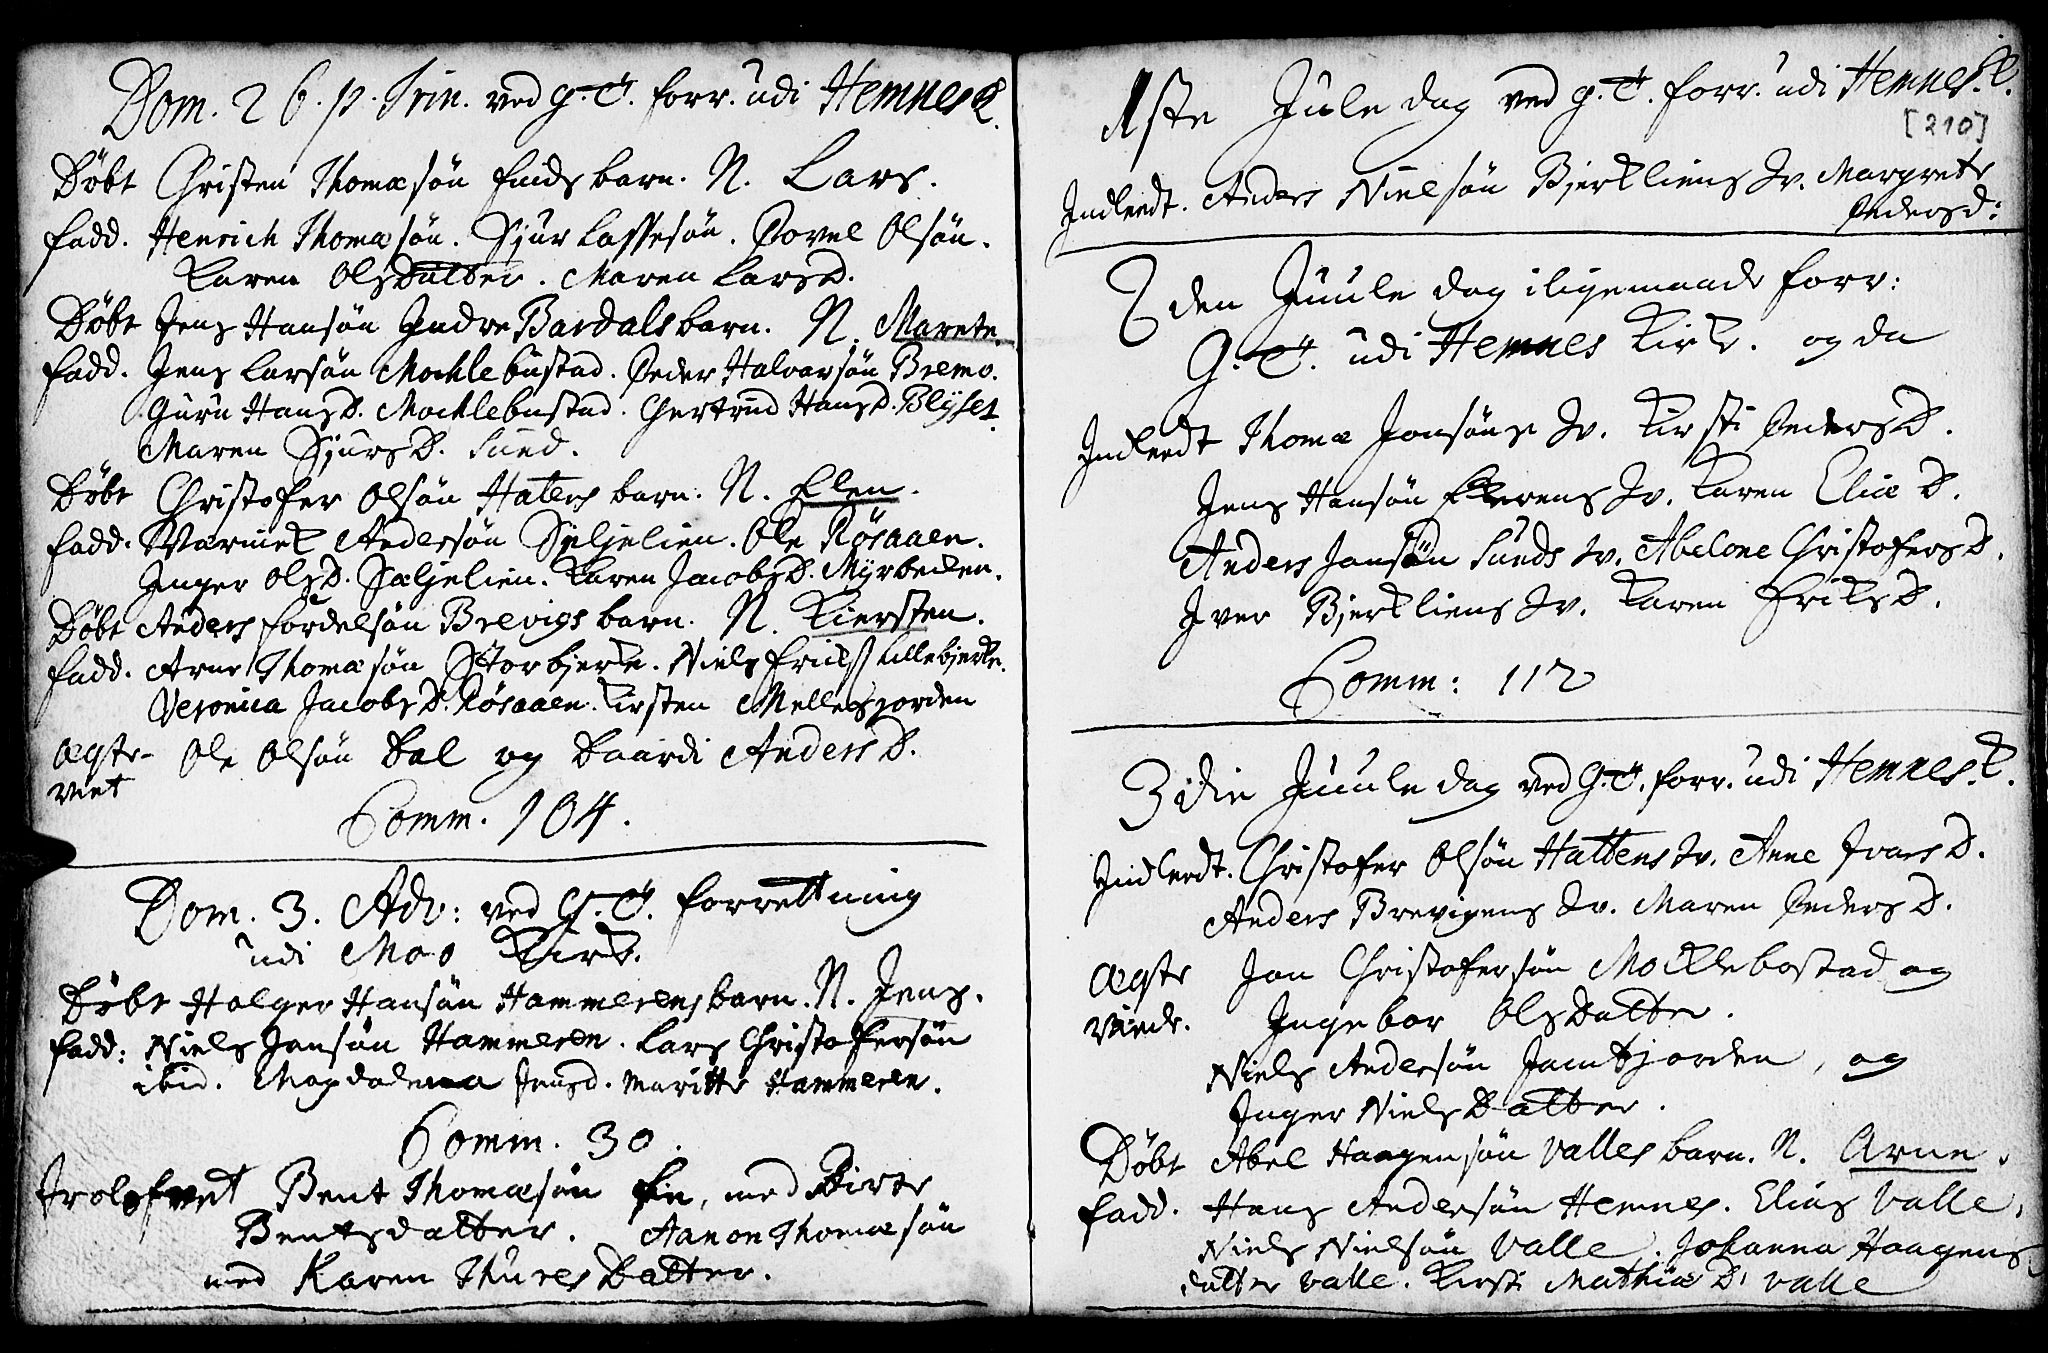 Dom. 26. p. Trin. ved G. T. forr. udi Hemnes K.
Döbt Christen Thomæsön Finds barn. N. Lars.
Fadd. Henrich Thomæsön. Sjur Lassesön. Povel Olsön.
Karen Olsdatter. Maren LarsD.
Döbt Jens Hansön Indre Bardals barn. N. Marete.
Fadd. Jens Larsön Mochlebustad. Peder Halvarsön Bremo.
Guru HansD. Mochlebustad. Gertrud HansD. Blÿset.
Maren SjursD. Sund.
Döbt Christofer Olsön Hatens barn. N. Elen.
Fadd. Andersön Seljelien. Ole Rösaaen.
Inger OlsD. Sæljelien. Karen JacobsD. Mÿrbecken.
Döbt Anders Fordelsön Brevigs barn. N. Kiersten.
Fadd. Arne Thomæsön Storbjerk. Niels Erichs. Lillebjerke.
Veronica JacobsD. Rösaaen. Kirsten Mellesjorden
Ægte- Ole Olsön Dal og Baardi AndersD.
viet
Comm. 104.
Dom. 3. Adv: ved G. T. forrettning
udi Moo Kirk.
Döbt Holger Hansön Hammerens barn. N. Jens.
Fadd: Niels Jansön Hammeren. Lars Christofersön
ibid. Magdalena Jensd. Maritte Hammeren.
Comm. 30.
Trolofvet Bent Thomæsön Fin, med Birte
Bentsdatter. Aanon Thomæsön
med Karen Thures Datter.
1ste Jule dag ved G. T. forr. udi Hemnes. K.
[210]
Indleedt. Anders Nielsön Bjerkliens Qv. Margrete
Pedersd:
2den Juule dag iligemaade forr:
G. T. udi Hemnes Kirk. og da
Indleedt Thomæ Jonsöns Qv. Kirsti PedersD.
Jens Hansön Qv. Karen Eliæ D.
Anders Jansön Sunds Qv. Abelone ChristofersD.
Iver Bjerkliens Qv. Karen EriksD.
Comm: 112
3die Juule dag ved G. T. forr. udi Hemnes. K.
Indleedt. Christofer Olsön Hattens Qv. Anne IvarsD.
Anders Brevigens Qv. Maren PedersD.
Ægte Jon Christofersön Mocklebostad og
Viede. Ingebor Olsdatter.
Niels Andersön Jamtjorden, og
Inger NielsDatter.
Döbt Abel Haagensön Valles barn. N. Arne.
Fadd. Hans Andersön Hemnes. Elias Valle.
Niels Nielsön Valle. Johanna Haagens
datter Valle. Kirsti Mathiæ D. Valle